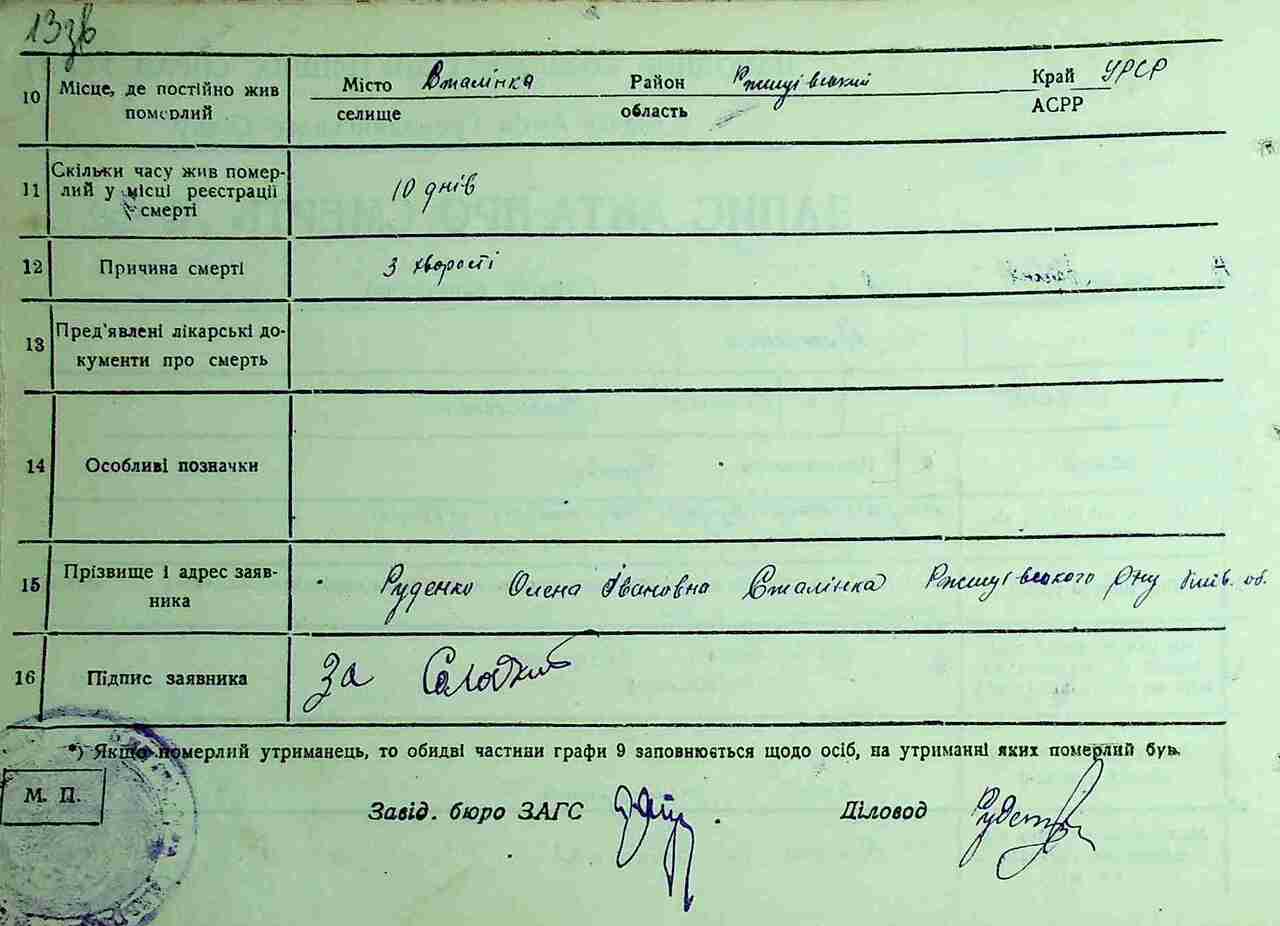 13зв
10 Місце, де постійно жив Місто Сталінка Район Ржищівський Край УРСР
померлий селище область АСРР
11 Скільки часу жив помер-
лий у місці реєстрації 10 днів
смерті
12 Причина смерті З хворості
13 Пред'явлені лікарські до-
кументи про смерть
14 Особливі позначки
15 Прізвище і адрес заяв- Руденко Олена Івановна Сталінка Ржищівського рну Київ. об.
ника
16 Підпис заявника За Солодкий
*) Якщо померлий утриманець, то обидві частини графи 9 заповнюється щодо осіб, на утриманні яких померлий був.
М. П.
Завід. бюро ЗАГС Діловод